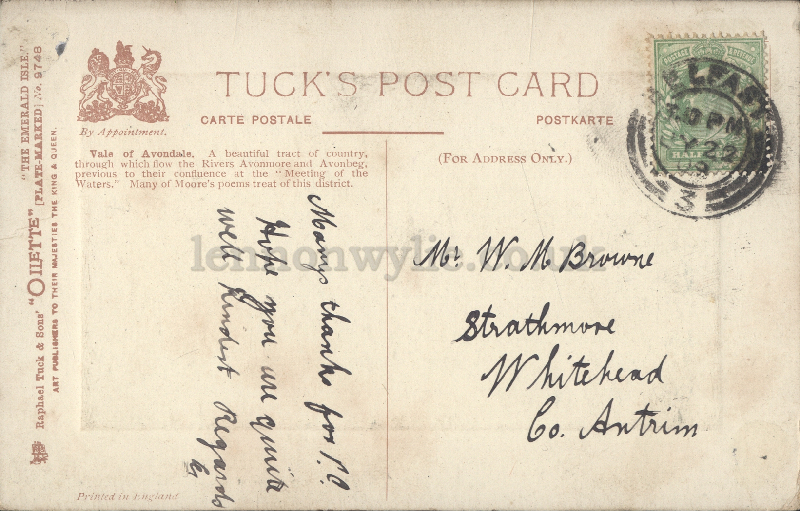 "THE EMERALD ISLE."
Raphael Tuck & Sons' "OILETTE" [PLATE-MARKED] No. 9748
ART PUBLISHERS TO THEIR MAJESTIES THE KING & QUEEN.
By Appointment.
TUCK'S POST CARD
CARTE POSTALE
POSTKARTE
Vale of Avondale. A beautiful tract of country,
through which flow the Rivers Avonmore and Avonbeg,
previous to their confluence at the "Meeting of the
Waters." Many of Moore's poems treat of this district.
(FOR ADDRESS ONLY.)
Manys thanks for P.C.
Hope you are quite
well Kindest Regards
Mr. W. M Browne
Strathmore
Whitehead
Co. Antrim
Printed in England
POSTAGE
HALF
BELFAST
PM
22
3
lennonwylie.co.uk